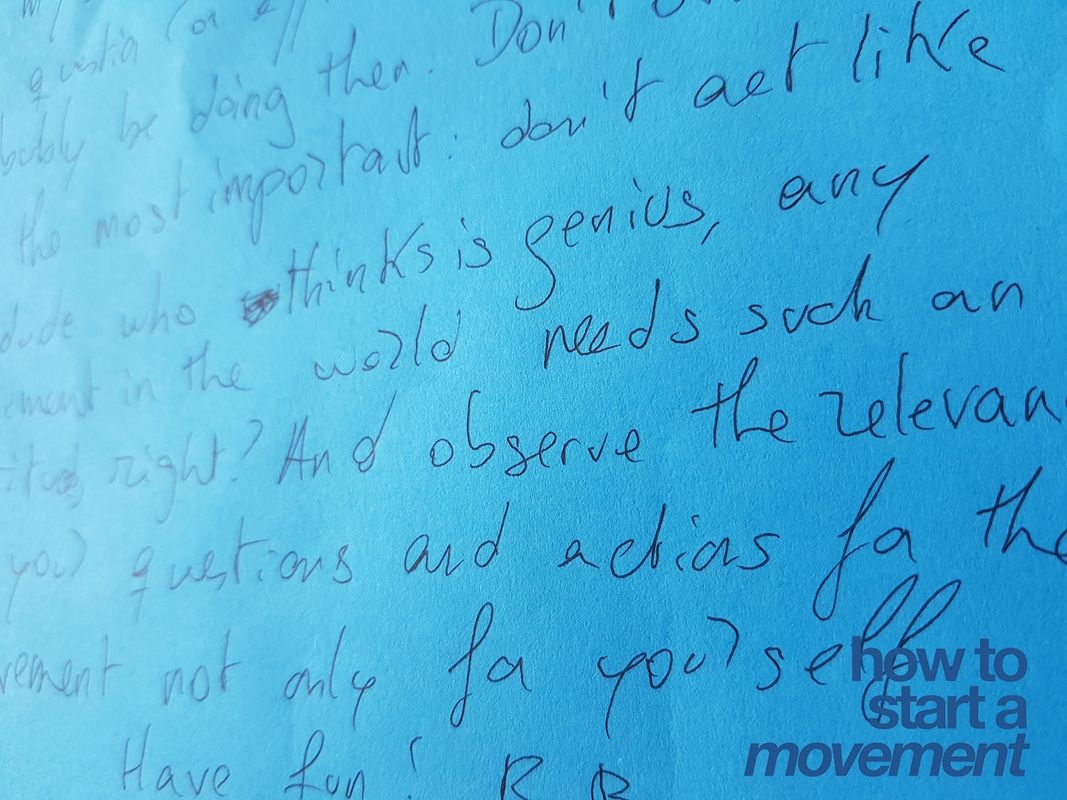 question for
bubly be doing then. Don't
the most important: don't act like
dude who thinks is genius, any
ement in the world needs such an
right? And observe the relevan
your questions and actions for the
vement not only for yourself
Have fun! R B
how to
start a
movement